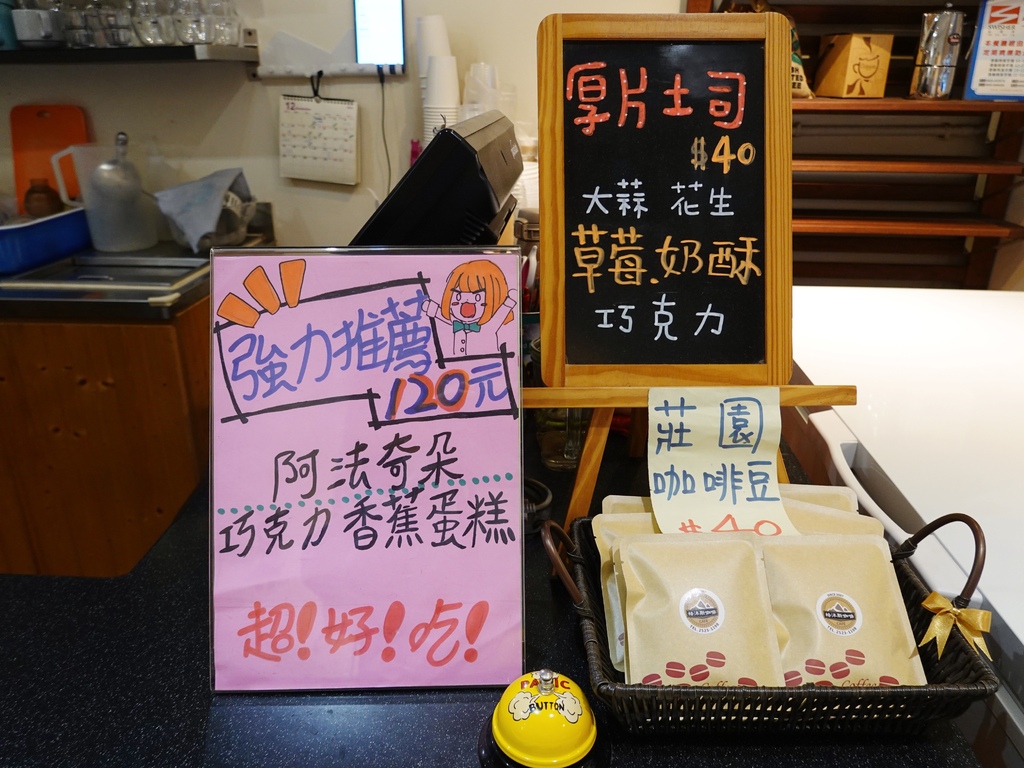 厚片土司
$40
大蒜 花生
草莓.奶酥
巧克力
強力推薦
120元
阿法奇朵
巧克力香蕉蛋糕
超!好!吃!
莊園
咖啡豆
$40
PANIC
BUTTON
12
Coffee